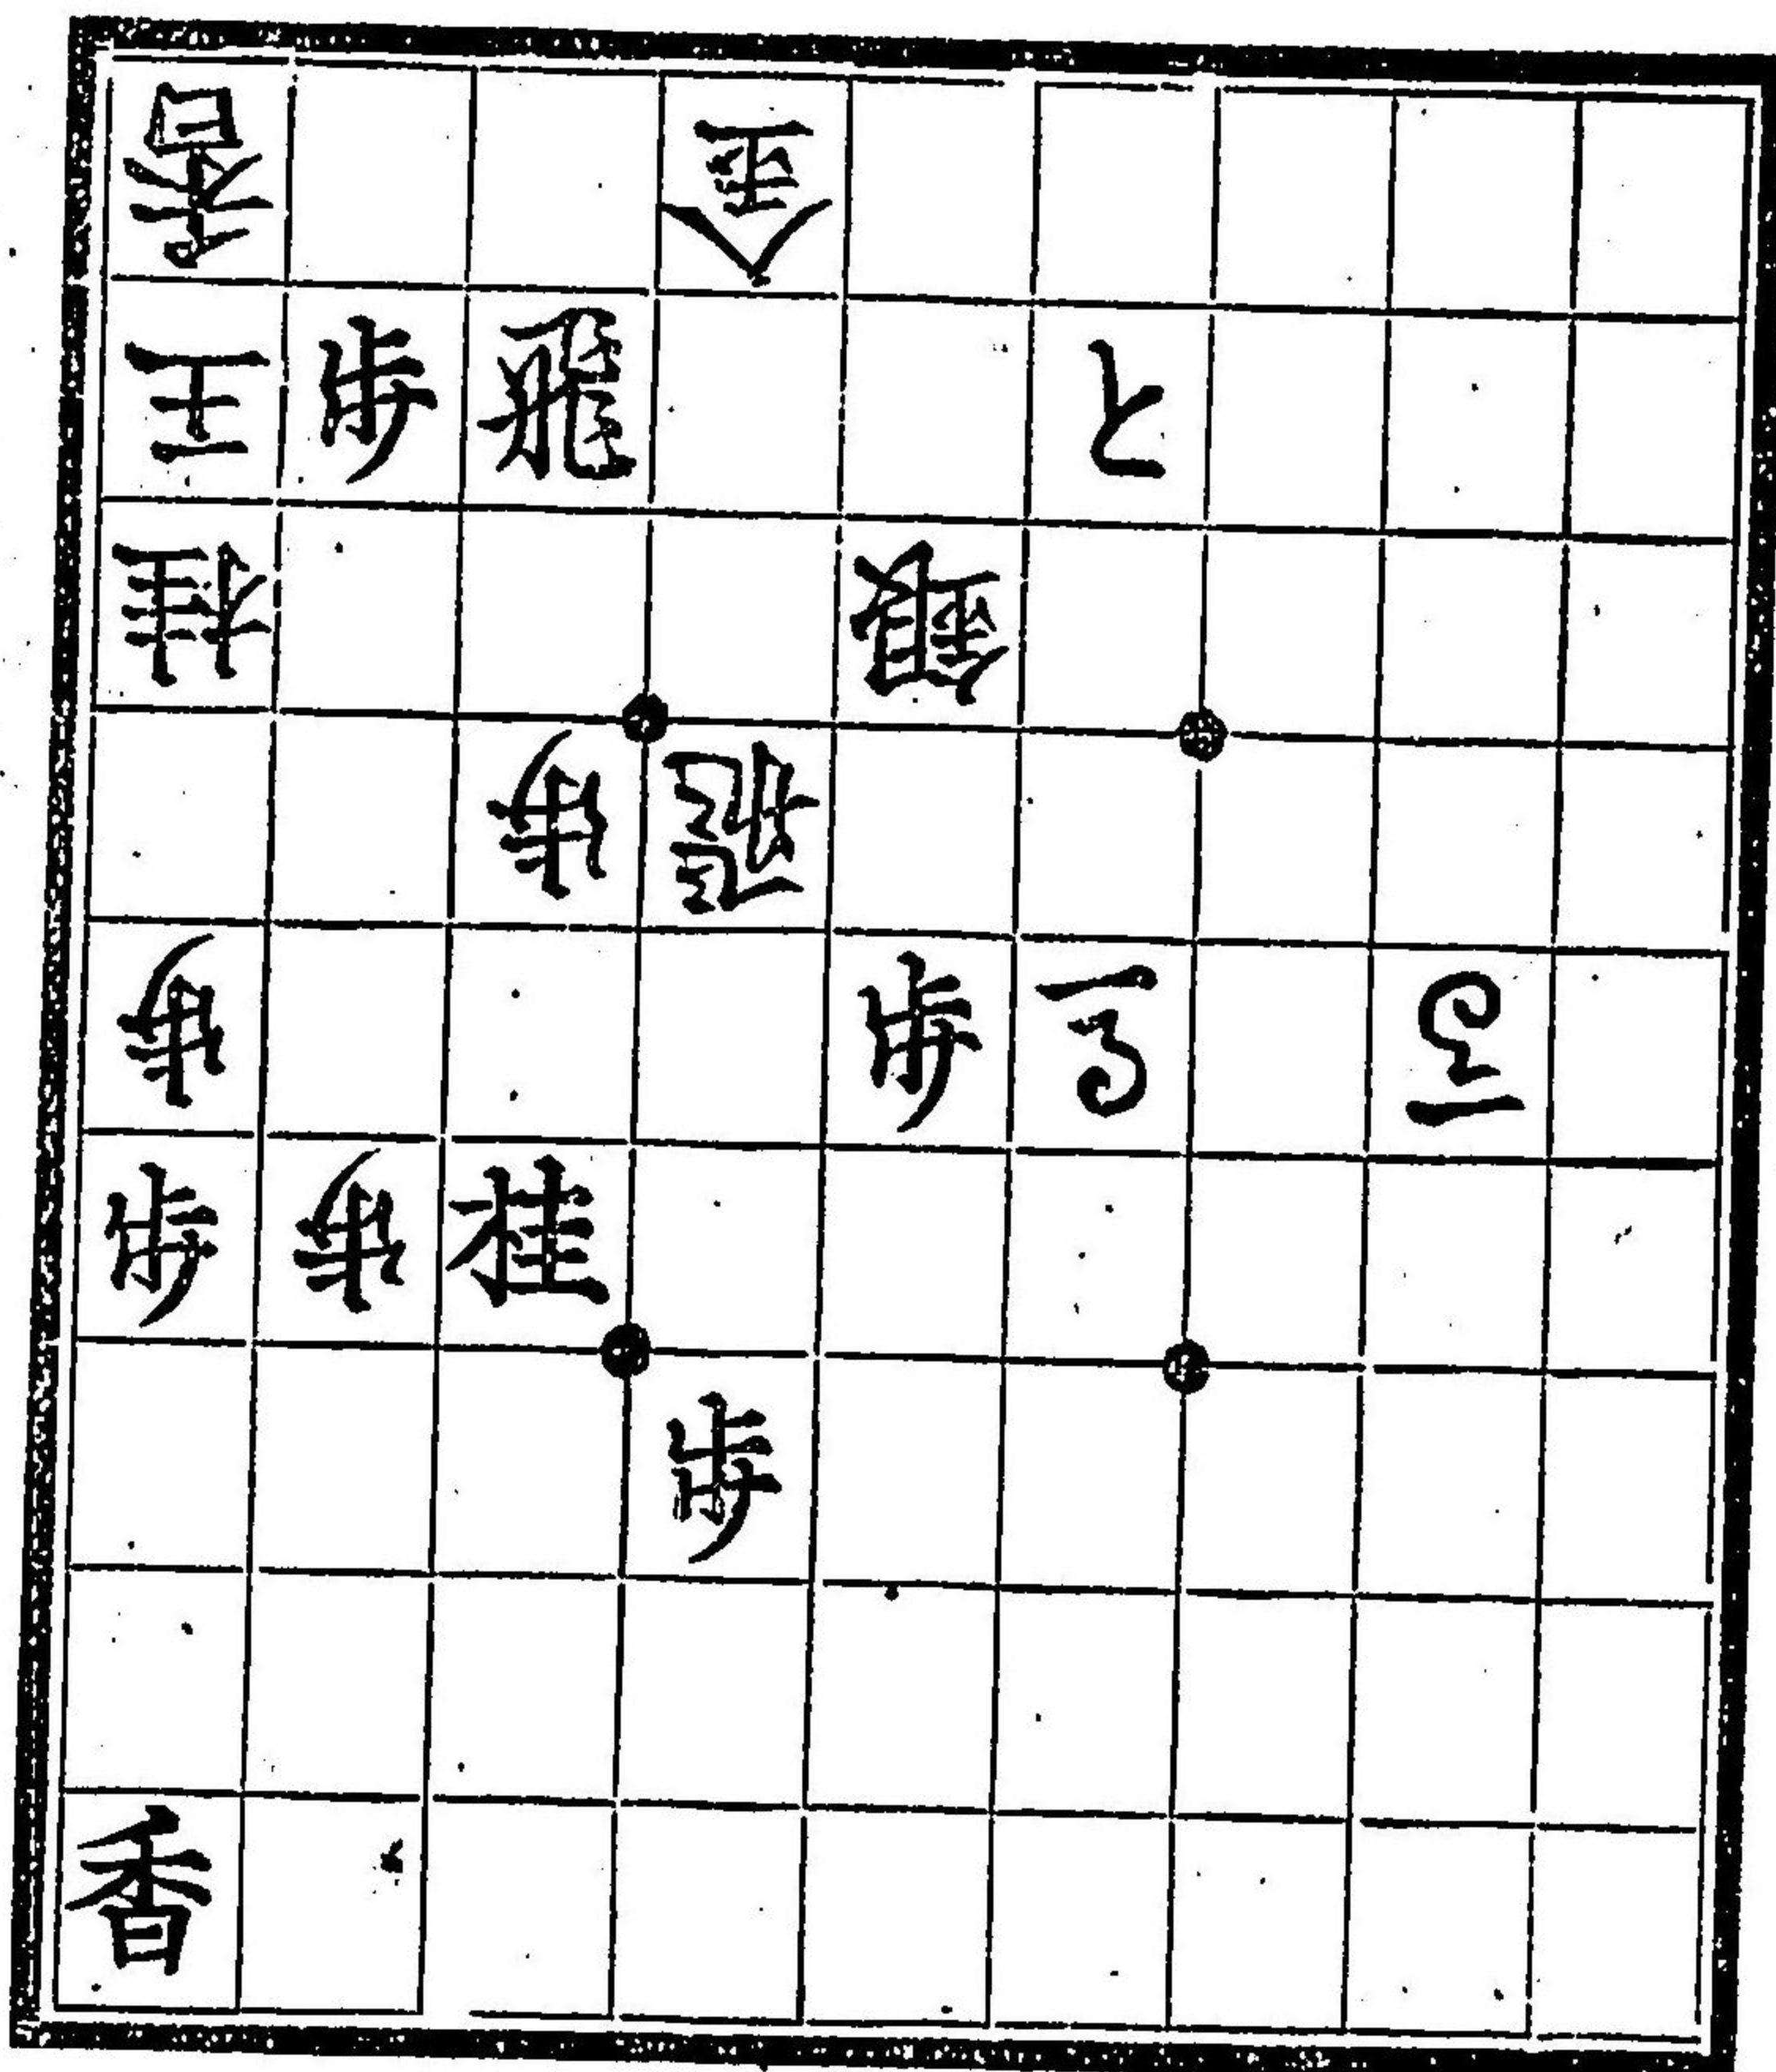 香 金
王 歩 飛 と
桂 銀
歩 飛
歩 歩 馬 馬
歩 歩 桂
歩
香